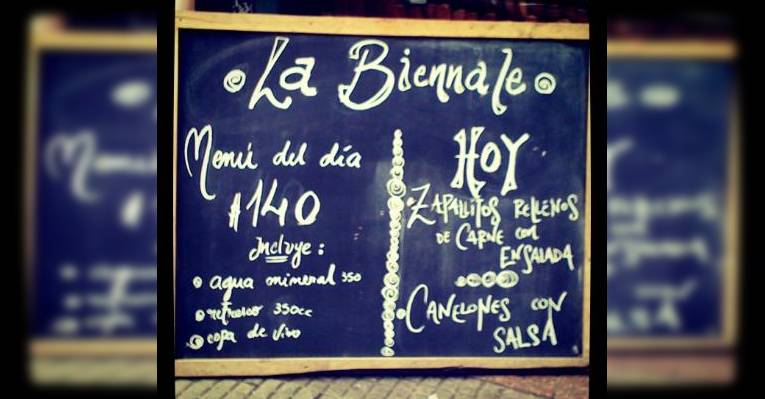 La Biennale
Menú del día
$140
Incluye:
agua mineral 350
refresco 350cc
copa de vino
HOY
ZAPALLITOS RELLENOS
DE CARNE con
ENSALADA
CANELONES CON
SALSA